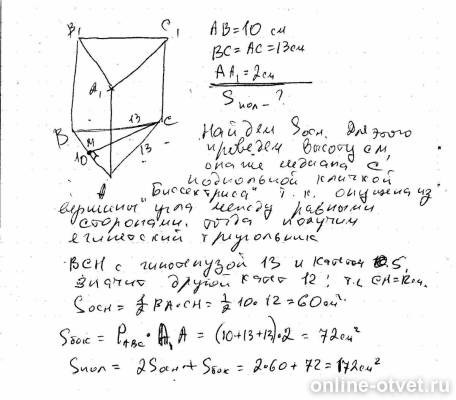 B₁ C₁
A₁
B 13 C
M 13
10
A
AB=10 см
BC=AC=13см
AA₁=2см
Sпол-?
Найдем Sосн. Для этого
проведем высоту СМ,
она же медиана С
подпольной кличкой
"Биссектриса" т.к. опущена из
вершины угла между равными
сторонами. тогда получим
египетский треугольник
BCH с гипотенузой 13 и катетом 5,
значит другой катет 12; т.е CH=12см.
Sосн = 1/2 BA·CH = 1/2 10·12=60см²
Sбок = P_ABC · A₁A = (10+13+13)·2 = 72см²
Sпол = 2Sосн + Sбок = 2·60+72=172см²
online-otvet.ru